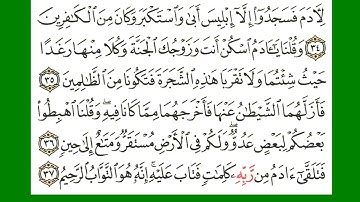 لِأَدَمَ فَسَجَدُوٓا۟ إِلَّآ إِبْلِيسَ أَبَىٰ وَٱسْتَكْبَرَ وَكَانَ مِنَ ٱلْكَٰفِرِينَ
٣٤ وَقُلْنَا يَٰٓـَٔادَمُ ٱسْكُنْ أَنتَ وَزَوْجُكَ ٱلْجَنَّةَ وَكُلَا مِنْهَا رَغَدًا
حَيْثُ شِئْتُمَا وَلَا تَقْرَبَا هَٰذِهِ ٱلشَّجَرَةَ فَتَكُونَا مِنَ ٱلظَّٰلِمِينَ ٣٥
فَأَزَلَّهُمَا ٱلشَّيْطَٰنُ عَنْهَا فَأَخْرَجَهُمَا مِمَّا كَانَا فِيهِ ۖ وَقُلْنَا ٱهْبِطُوا۟
بَعْضُكُمْ لِبَعْضٍ عَدُوٌّ ۖ وَلَكُمْ فِى ٱلْأَرْضِ مُسْتَقَرٌّ وَمَتَٰعٌ إِلَىٰ حِينٍ ٣٦
فَتَلَقَّىٰٓ ءَادَمُ مِن رَّبِّهِۦ كَلِمَٰتٍ فَتَابَ عَلَيْهِ ۚ إِنَّهُۥ هُوَ ٱلتَّوَّابُ ٱلرَّحِيمُ ٣٧